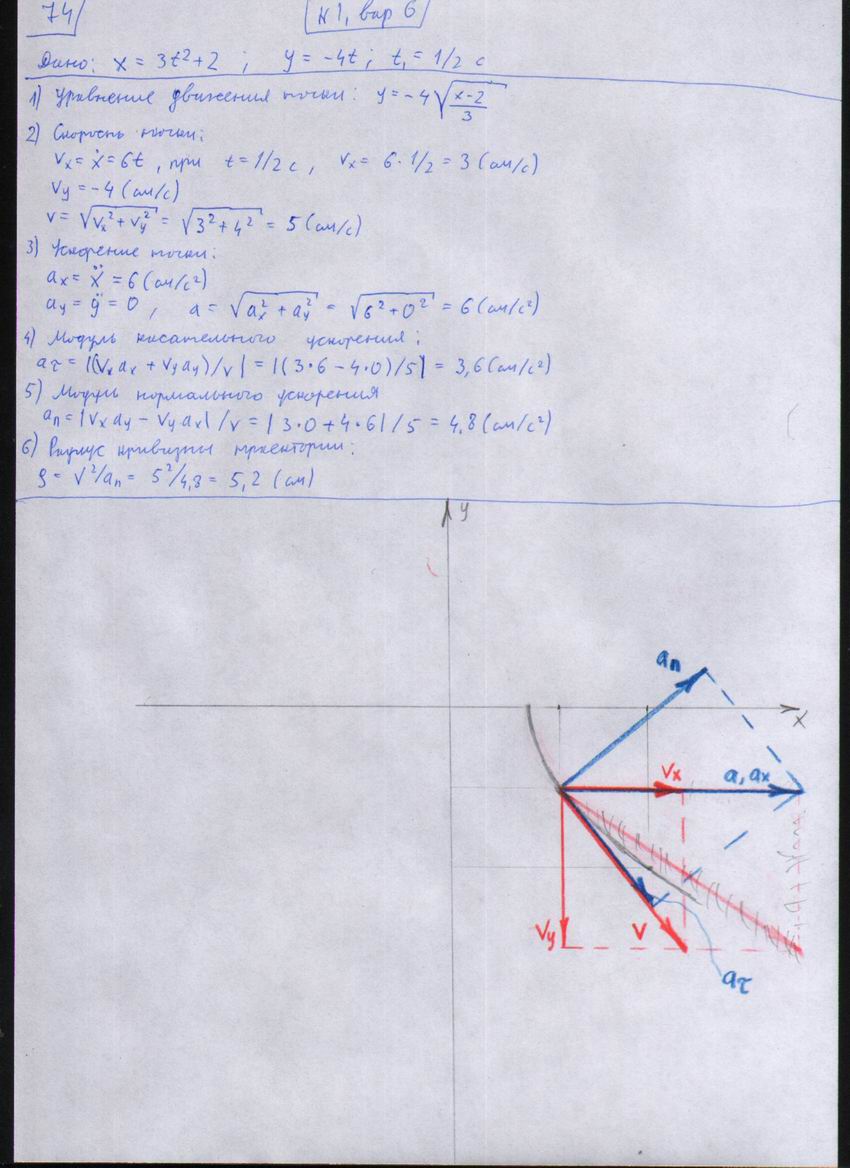 74
N1, вар 6
Дано: x = 3t²+2 ; y = -4t ; t₁ = 1/2 c
1) Уравнение движения точки: y = -4√((x-2)/3)
2) Скорость точки:
Vx = ẋ = 6t , при t = 1/2 c , Vx = 6·1/2 = 3 (см/с)
Vy = -4 (см/с)
V = √(Vx²+Vy²) = √(3²+4²) = 5 (см/с)
3) Ускорение точки:
ax = ẍ = 6 (см/с²)
ay = ÿ = 0 , a = √(ax²+ay²) = √(6²+0²) = 6 (см/с²)
4) Модуль касательного ускорения:
aτ = |(Vx ax + Vy ay)/V| = |(3·6 - 4·0)/5| = 3,6 (см/с²)
5) Модуль нормального ускорения
an = |Vx ay - Vy ax| / V = |3·0 + 4·6| / 5 = 4,8 (см/с²)
6) Радиус кривизны траектории:
ρ = V²/an = 5²/4,8 = 5,2 (см)
y
an
x
Vx
a, ax
Vy
V
aτ